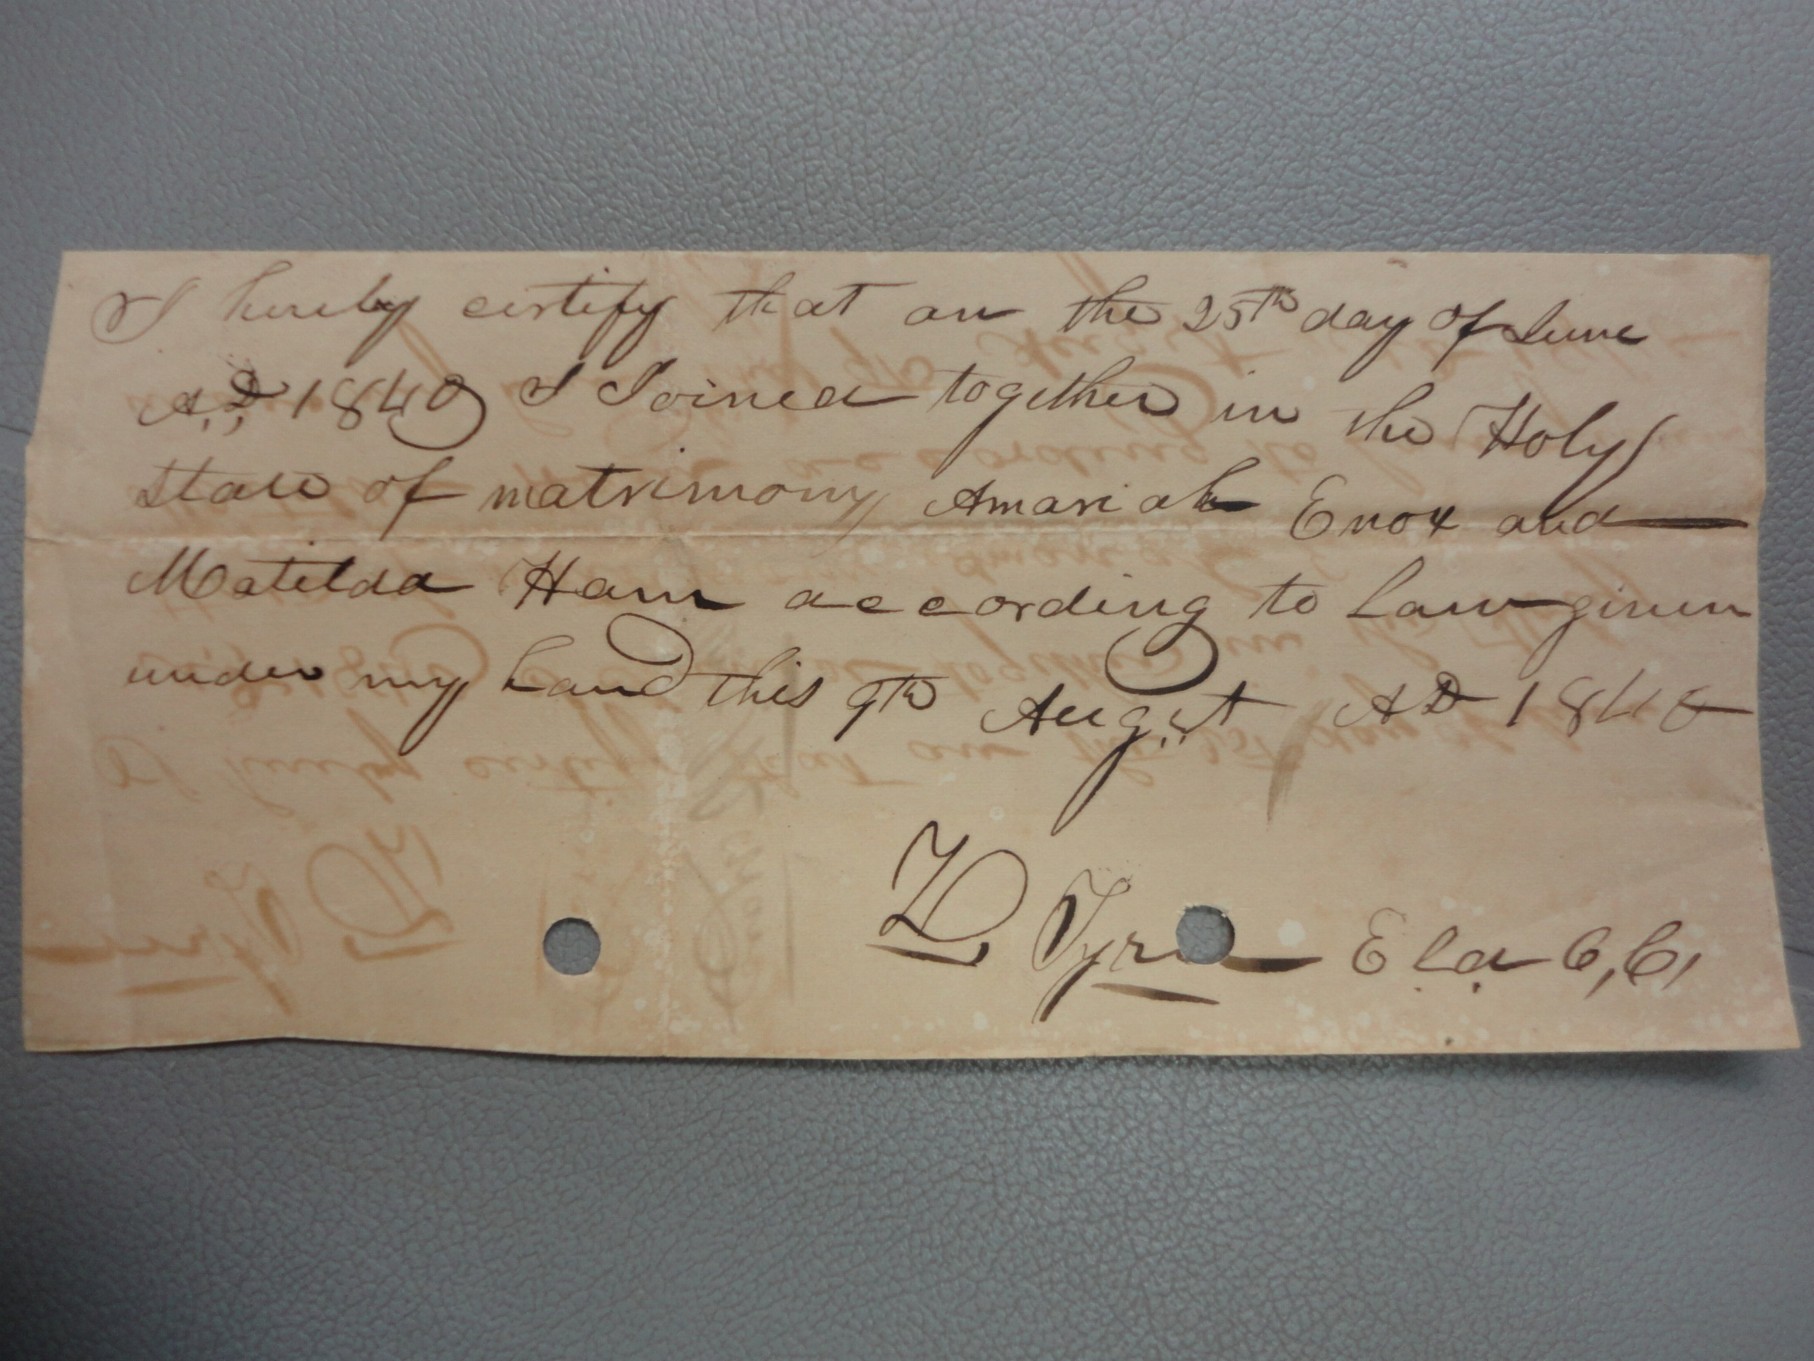 I hereby certify that on the 25th day of June
A.D. 1840 I Joined together in the Holy
State of matrimony Amariah Enox and
Matilda Ham according to Law given
under my hand this 9th Augst AD 1840
Eld C, C,